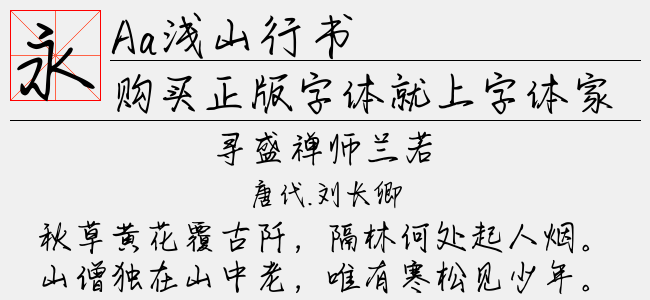 永
Aa浅山行书
购买正版字体就上字体家
寻盛禅师兰若
唐代.刘长卿
秋草黄花覆古阡，隔林何处起人烟。
山僧独在山中老，唯有寒松见少年。